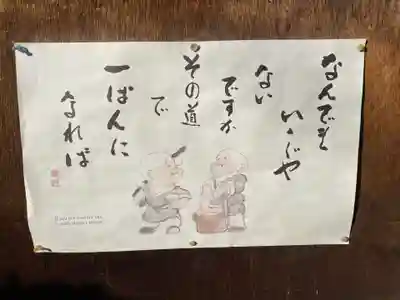 なんでも
いゝじや
ない
ですか
その道
で
一ばんに
なれば